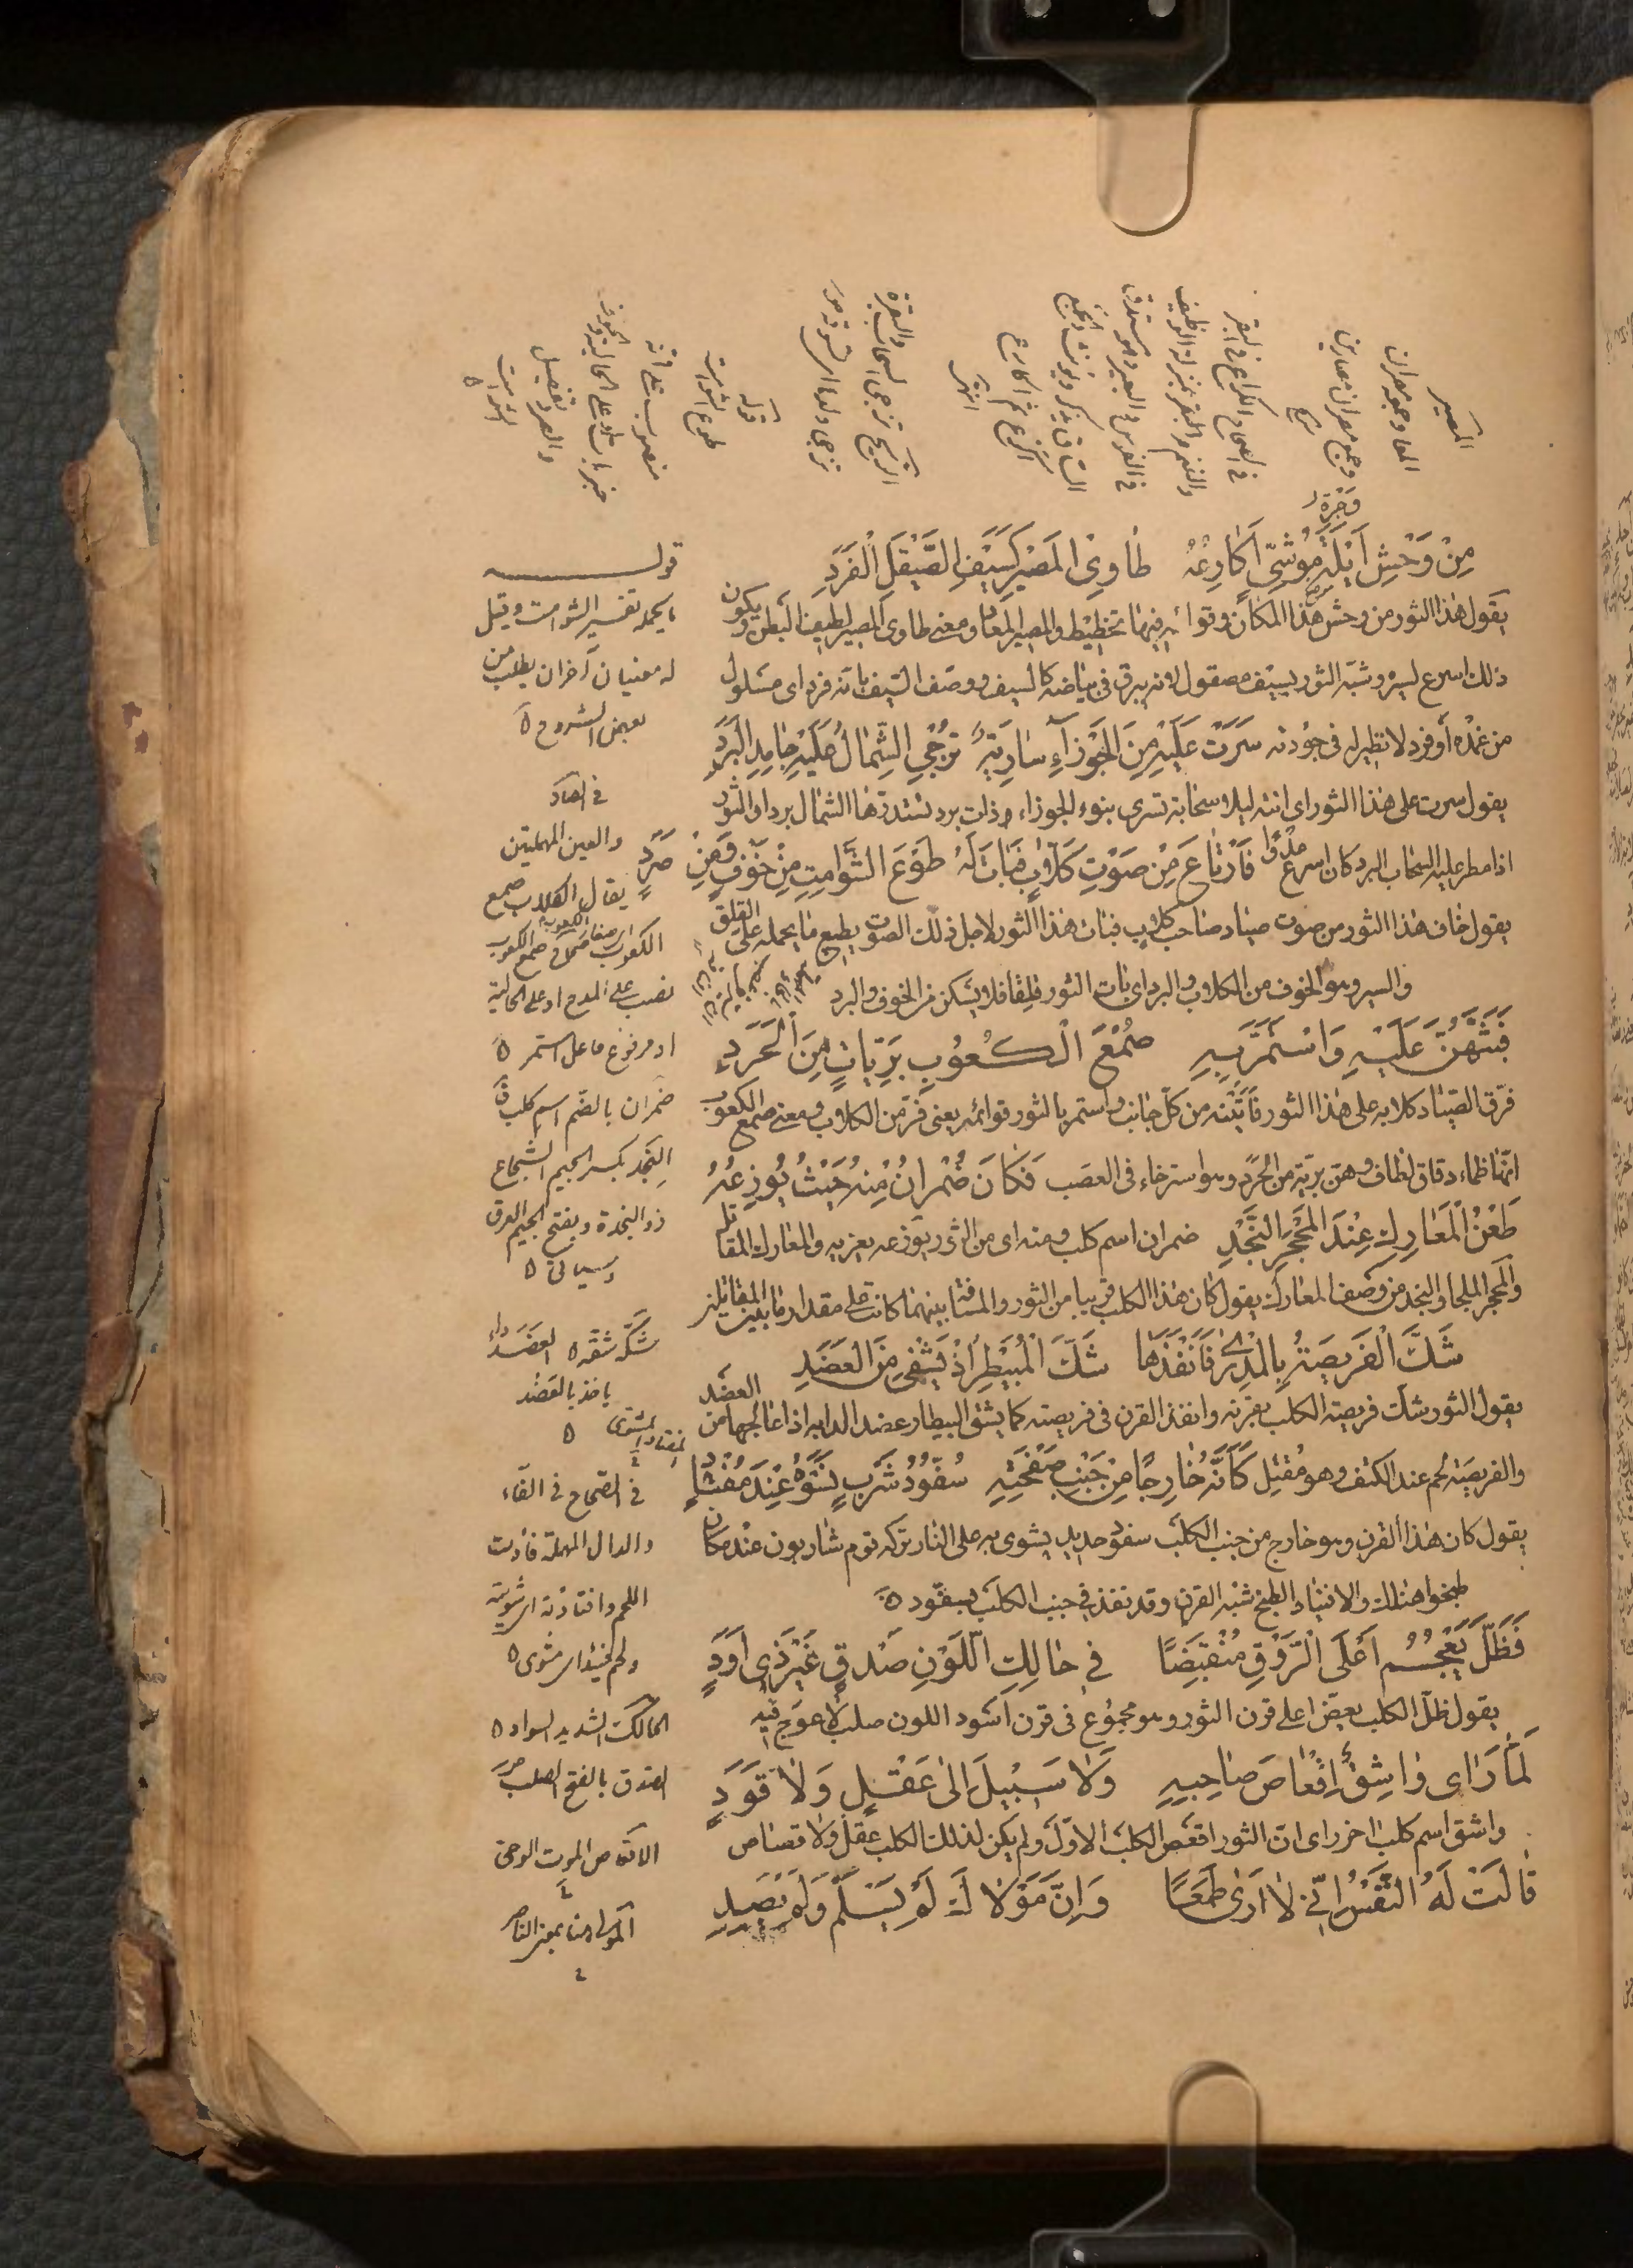 المصير
المعا وجمعه مصران
وجمع مصران مصارين
في الصحاح الكراع في البقر
والغنم بمنزلة الوظيف
في الفرس والبعير وهو مستدق
الساق يذكر ويؤنث والجمع
اكرع ثم اكارع
انتهى
تزجى
قوله
طوع الشوامت
منصوب على انه
خبر بات او على الحالية
والصرد
الشوامت
وجرة
مِنْ وَحْشِ اَيْلَةَ مُوْشِيٍّ اَكَارِعُهُ طَاوِي الْمَصِيْرِ كَسَيْفِ الصَّيْقَلِ الْفَرَدِ
يقول هذا الثور من وحش هذا المكان وقوائمه فيها تخطيط والمصير المعا ومعنى طاوي المصير لطيف البطن ويكون
ذلك اسرع لسيره وشبّه الثور بسيف مصقول لانه يبرق في بياضه كالسيف ووصف السيف بانه فرد اى مسلول
من غمده أو فرد لا نظير له في جودته سَرَتْ عَلَيْهِ مِنَ الْجَوْزَآءِ سَارِيَةٌ تُزْجِي الشِّمَالُ عَلَيْهِ جَامِدَ الْبَرَدِ
يقول سرت على هذا الثور اى اتته ليلا سحابة تسرى بنوء الجوزاء وذات برد تشتد رتها الشمال بردا والثور
اذا مطر عليه السحاب البرد كان اسرع عدوًا فَارْتَاعَ مِنْ صَوْتِ كَلَّابٍ فَبَاتَ لَهُ طَوْعَ الشَّوَامِتِ مِنْ خَوْفٍ وَمِنْ صَرَدِ
يقول خاف هذا الثور من صوت صياد صاحب كلاب فبات هذا الثور لاجل ذلك الصوت يطيع ما يحمله على القلق
والسير وهو الخوف من الكلاب والبرد اى بات الثور قلقا فلا يسكن من الخوف والبرد
فَبَثَّهُنَّ عَلَيْهِ وَاسْتَمَرَّ بِهِ صُمْعُ الْكُعُوبِ بَرِيَّاتٍ مِنَ الْحَرَدِ
فرّق الصياد كلابه على هذا الثور فاتته من كل جانب واستمر بالثور قوائمه يعني فرّ من الكلاب ومعنى صمع الكعوب
انها ظماء دقاق لطاف وهن برية من الحرد وهو استرخاء في العصب فَكَانَ ضُمْرَانُ مِنْهُ حَيْثُ يُوزِعُهُ
طَعْنُ الْمَعَارِكِ عِنْدَ الْمُحْجَرِ النَّجُدِ ضمران اسم كلب ومنه اى من الثور ويوزعه يغريه والمعارك المقاتل
والمحجر الملجا والنجد من وصف المعارك يقول كان هذا الكلب قريبا من الثور والمسافة بينهما كانت على مقدار ما بين المقاتلين
شَكَّ الْفَرِيصَةَ بِالْمِدْرَى فَانْفَذَهَا شَكَّ الْمُبَيْطِرِ اِذْ يَشْفِي مِنَ الْعَضَدِ
يقول الثور شك فريصة الكلب بقرنه وانفذ القرن في فريصته كما يشق البيطار عضد الدابه اذا عالجها من العضد
والفريصة لحم عند الكتف وهو مقتل كَاَنَّهُ خَارِجًا مِنْ جَنْبِ صَفْحَتِهِ سَفُّوْدُ شَرْبٍ نَسُوْهُ عِنْدَ مُفْتَأَدِ
يقول كان هذا القرن وهو خارج من جنب الكلب سفود حديد يشوى به على النار تركه قوم شاربون عند مكان
طبخوا هناك والافتياد الطبخ شبّه القرن وقد نفذ في جنب الكلب بسفّود ه
فَظَلَّ يَعْجُمُ اَعْلَى الرَّوْقِ مُنْقَبِضًا فِي حَالِكِ اللَّوْنِ صَدْقٍ غَيْرِ ذِي اَوَدِ
يقول ظلّ الكلب يعض اعلى قرن الثور وهو مجموع في قرن اسود اللون صلب لا عوج فيه
لَمَّا رَاَى وَاشِقٌ اِقْعَاصَ صَاحِبِهِ وَلَا سَبِيْلَ اِلَى عَقْلٍ وَلَا قَوَدِ
واشق اسم كلب اخر اى انّ الثور اقعص الكلب الاوّل ولم يكن لذلك الكلب عقل ولا قصاص
قَالَتْ لَهُ النَّفْسُ اِنِّي لَا اَرَى طَمَعًا وَاِنَّ مَوْلَاكَ لَمْ يَسْلَمْ وَلَمْ يَصِدِ
قوله
ما يحمله تفسير الشوامت وقيل
له معنيان آخران يطلب من
بعض الشروح ه
في الصاد
والعين المهملتين
يقال الكلاب صمع
الكعوب
نصب على المدح او على الحالية
او مرفوع فاعل استمر ه
ضمران بالضم اسم كلب ق
النجد بكسر الجيم الشجاع
ذو النجدة وبفتح الجيم العرق
وسياتي ه
شكّه شقّه ه العضد داء
ياخذ بالعضد ه
في الصحاح في الفاء
والدال المهملة فادت
اللحم وافتادته اى شويته
ولحم فئيد اى مشوى ه
الحالك الشديد السواد ه
الصدق بالفتح الصلب ص
الاقعاص الموت الوحى
المولى هنا بمعنى الناصر